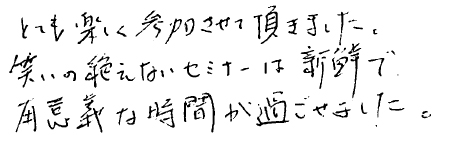 とても楽しく参加させて頂きました。
笑いの絶えないセミナーは新鮮で
有意義な時間が過ごせました。